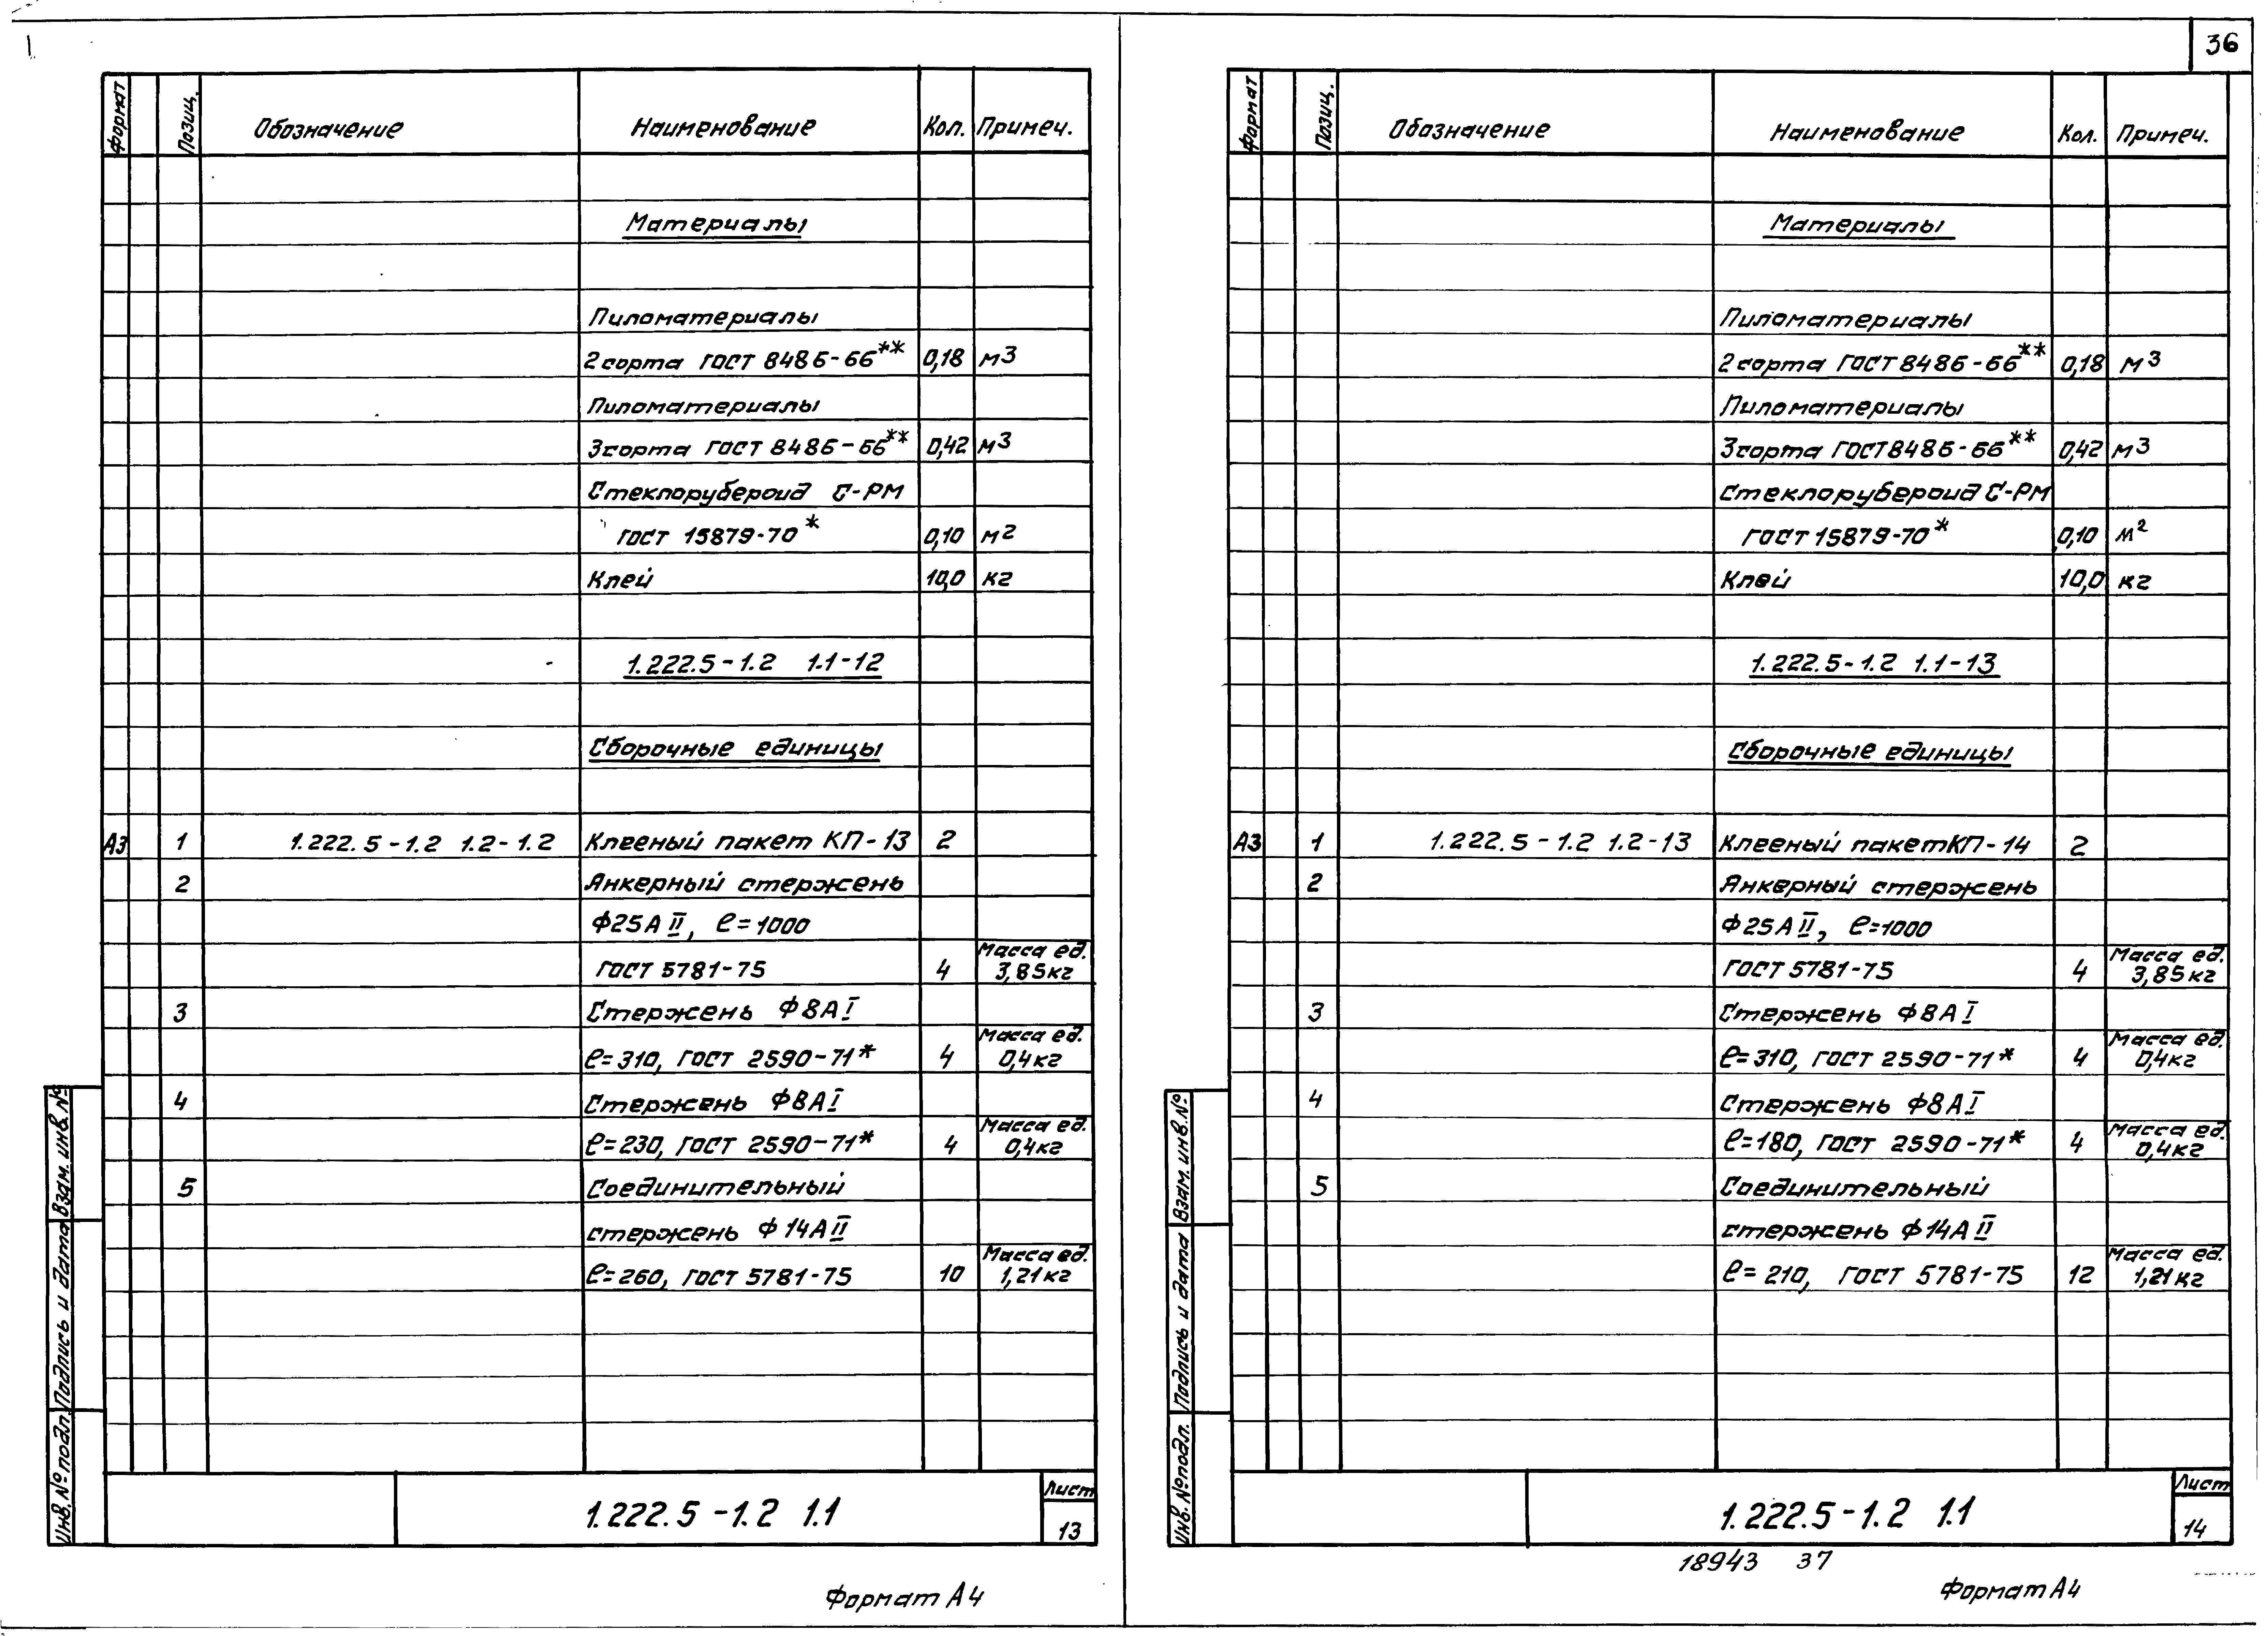 36
Формат Позиц. Обозначение Наименование Кол. Примеч.
Материалы
Пиломатериалы
2 сорта ГОСТ 8486-66** 0,18 м3
Пиломатериалы
3 сорта ГОСТ 8486-66** 0,42 м3
Стеклорубероид С-РМ
ГОСТ 15879-70* 0,10 м2
Клей 10,0 кг
1.222.5-1.2 1.1-12
Сборочные единицы
А3 1 1.222.5-1.2 1.2-1.2 Клееный пакет КП-13 2
2 Анкерный стержень
Ф25АII, ℓ=1000
Масса ед.
ГОСТ 5781-75 4 3,85кг
3 Стержень Ф8АI
Масса ед.
ℓ=310, ГОСТ 2590-71* 4 0,4кг
4 Стержень Ф8АI
Масса ед.
ℓ=230, ГОСТ 2590-71* 4 0,4кг
5 Соединительный
стержень Ф14АII
Масса ед.
ℓ=260, ГОСТ 5781-75 10 1,21кг
Инв. № подл. Подпись и дата Взам. инв. №
1.222.5-1.2 1.1
Лист
13
Формат А4
Формат Позиц. Обозначение Наименование Кол. Примеч.
Материалы
Пиломатериалы
2 сорта ГОСТ 8486-66** 0,18 м3
Пиломатериалы
3 сорта ГОСТ 8486-66** 0,42 м3
Стеклорубероид С-РМ
ГОСТ 15879-70* 0,10 м2
Клей 10,0 кг
1.222.5-1.2 1.1-13
Сборочные единицы
А3 1 1.222.5-1.2 1.2-13 Клееный пакет КП-14 2
2 Анкерный стержень
Ф25АII, ℓ=1000
Масса ед.
ГОСТ 5781-75 4 3,85кг
3 Стержень Ф8АI
Масса ед.
ℓ=310, ГОСТ 2590-71* 4 0,4кг
4 Стержень Ф8АI
Масса ед.
ℓ=180, ГОСТ 2590-71* 4 0,4кг
5 Соединительный
стержень Ф14АII
Масса ед.
ℓ=210, ГОСТ 5781-75 12 1,21кг
Инв. № подл. Подпись и дата Взам. инв. №
1.222.5-1.2 1.1
Лист
14
18943 37
Формат А4